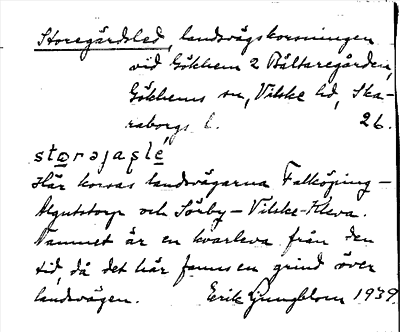 Storegårdsled, landsvägskorsningen
vid Gökhem 2 Bältaregården,
Gökhems sn, Vilske hd, Ska-
raborgs l. 26.
storəjaɐle
Här korsas landsvägarna Falköping –
Algutstorp och Sörby – Vilske-Kleva.
Namnet är en kvarleva från den
tid, då det här fanns en grind över
landsvägen. Erik Ljungblom 1939.